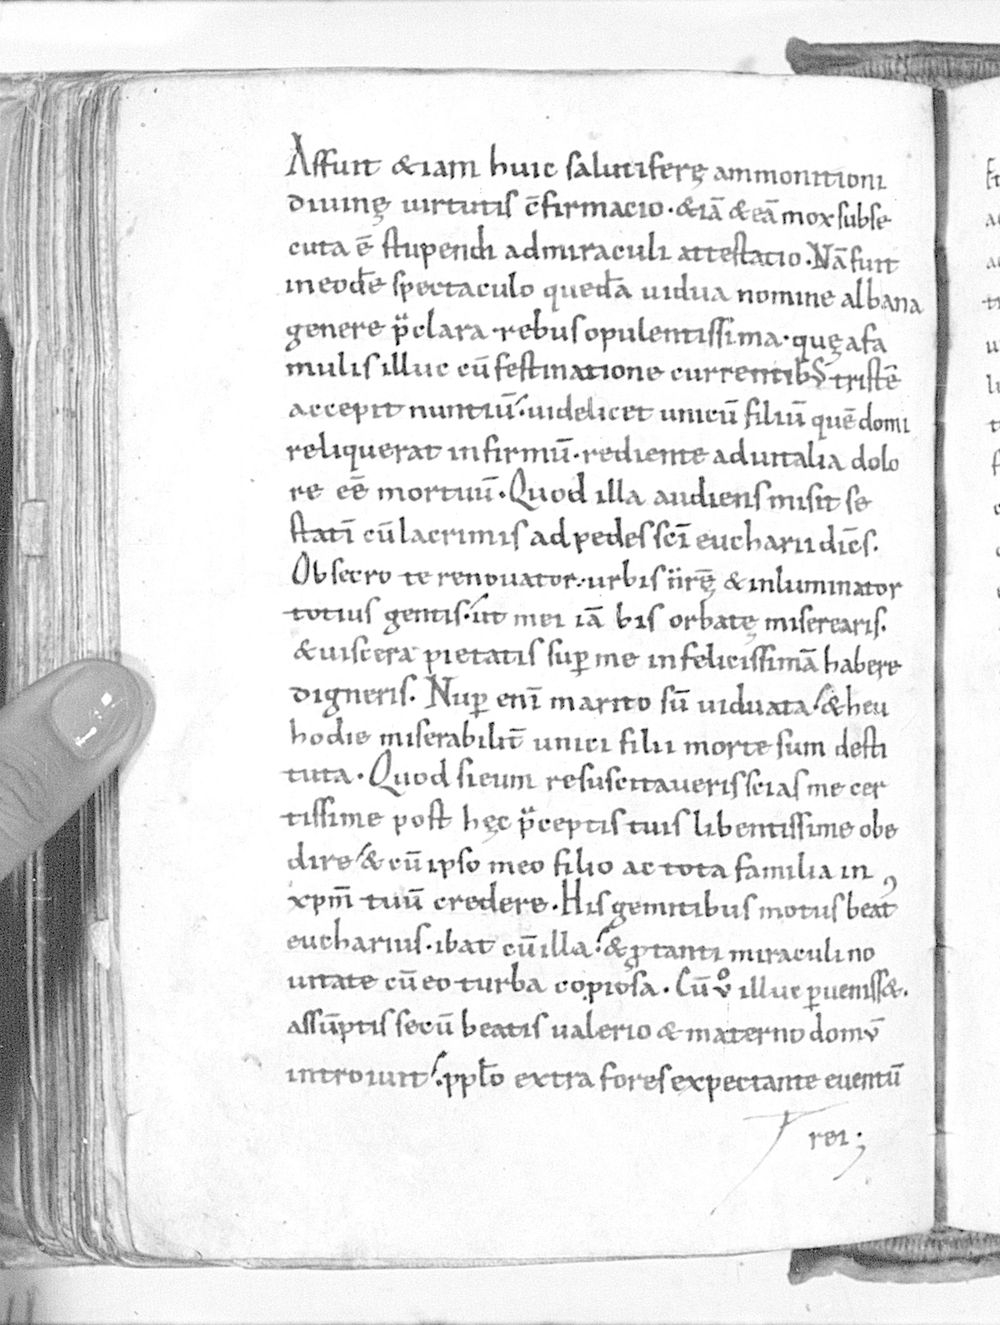 Affuit &iam huic salutiferę ammonitioni
diuinę uirtutis c̄firmacio·&iā &eā mox subse
cuta ē stupendi admiraculi attestatio·Nā fuit
in eodē spectaculo quedā uidua nomine albana
genere p̄clara rebus opulentissima·quę a fa
mulis illuc cū festinatione currentib; tristē
accepit nuntiū·uidelicet unicū filiū quē domi
reliquerat infirmū·rediente ad uitalia dolo
re eē mortuū·Quod illa audiens misit se
statī cū lacrimis ad pedes sc̄i eucharii dic̄s.
Obsecro te renouator·urbis n̄rę & inluminator
totius gentis·ut mei iā bis orbatę miserearis.
& uiscera pietatis sup̱ me infelicissimā habere
digneris. Nup̱ enī marito sū uiduata·& heu
hodie miserabilit̄ unici filii morte sum desti
tuta·Quod si eum resuscitaueris scias me cer
tissime post hęc p̄ceptis tuis libentissime obe
dire·& cū ipso meo filio ac tota familia in
xp̄m tuū credere·His gemitibus motus beat᾿
eucharius·ibat cū illa·& ꝓ tanti miraculi no
uitate cū eo turba copiosa·Cū ů illuc p̱ueniss&.
assūptis secū beatis ualerio & materno domū
introiuit·ppl̄o extra fores expectante euentū
rei;